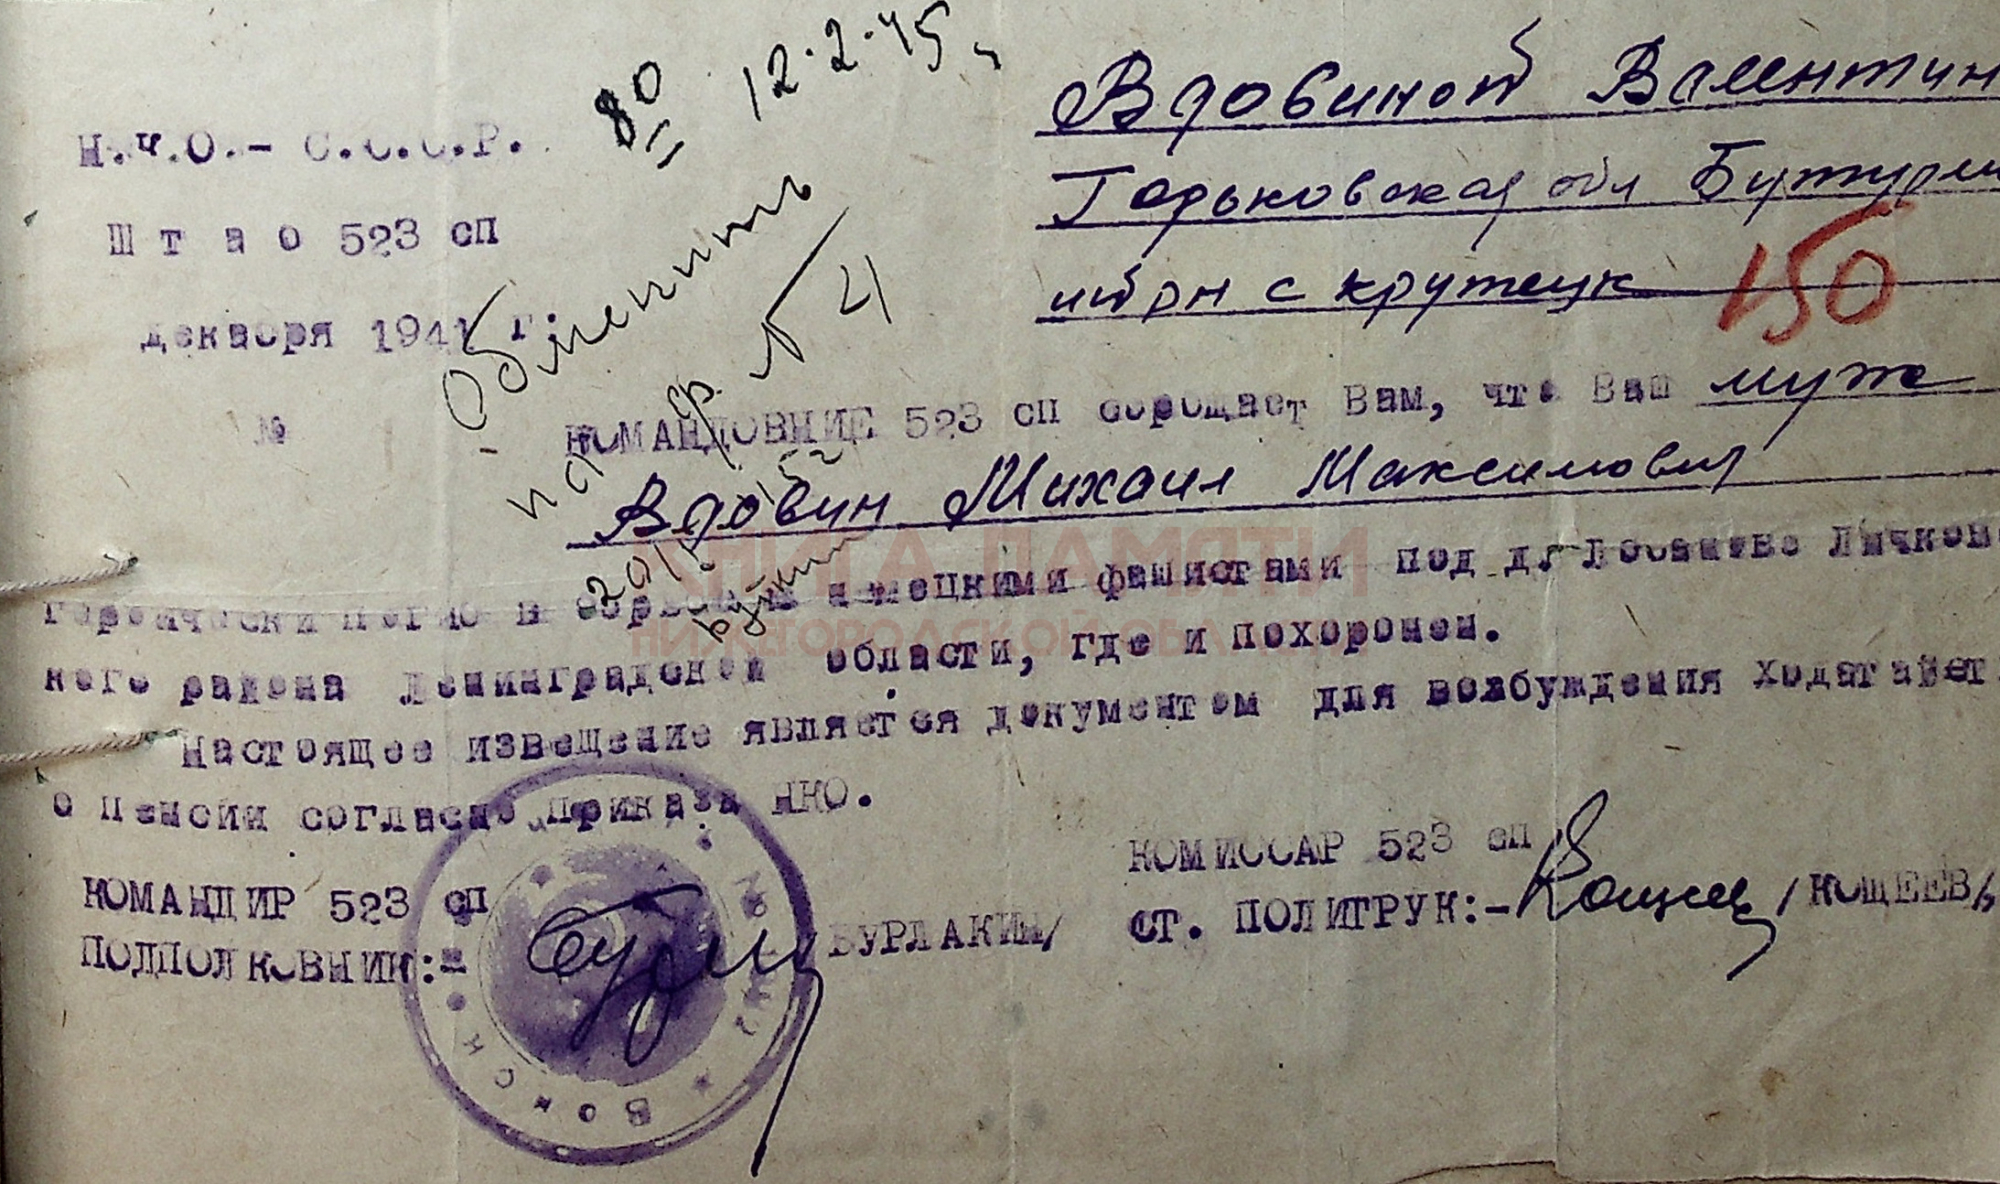 80 12.2.45
Вдовиной Валентин
Н.К.О.- С.С.С.Р.
Горьковская обл Бутурли
Штаб 523 сп
нский рн с крутец
150
декабря 1941 г.
Обменить
на ф. №4
№
КОМАНДОВНИЕ 523 сп сообщает Вам, что Ваш муж
Вдовин Михаил Максимович
КНИГА ПАМЯТИ
НИЖЕГОРОДСКОЙ ОБЛАСТИ
героически погиб в борьбе с немецкими фашистами под д. Лобаново Лычков
ского района Ленинградской области, где и похоронен.
Настоящее извещение является документом для возбуждения ходатайст
о пенсии согласно приказа НКО.
КОМАНДИР 523 сп
ПОДПОЛКОВНИК:- БУРЛАКИН/
КОМИССАР 523 сп
СТ. ПОЛИТРУК:- Кощеев /КОЩЕЕВ/